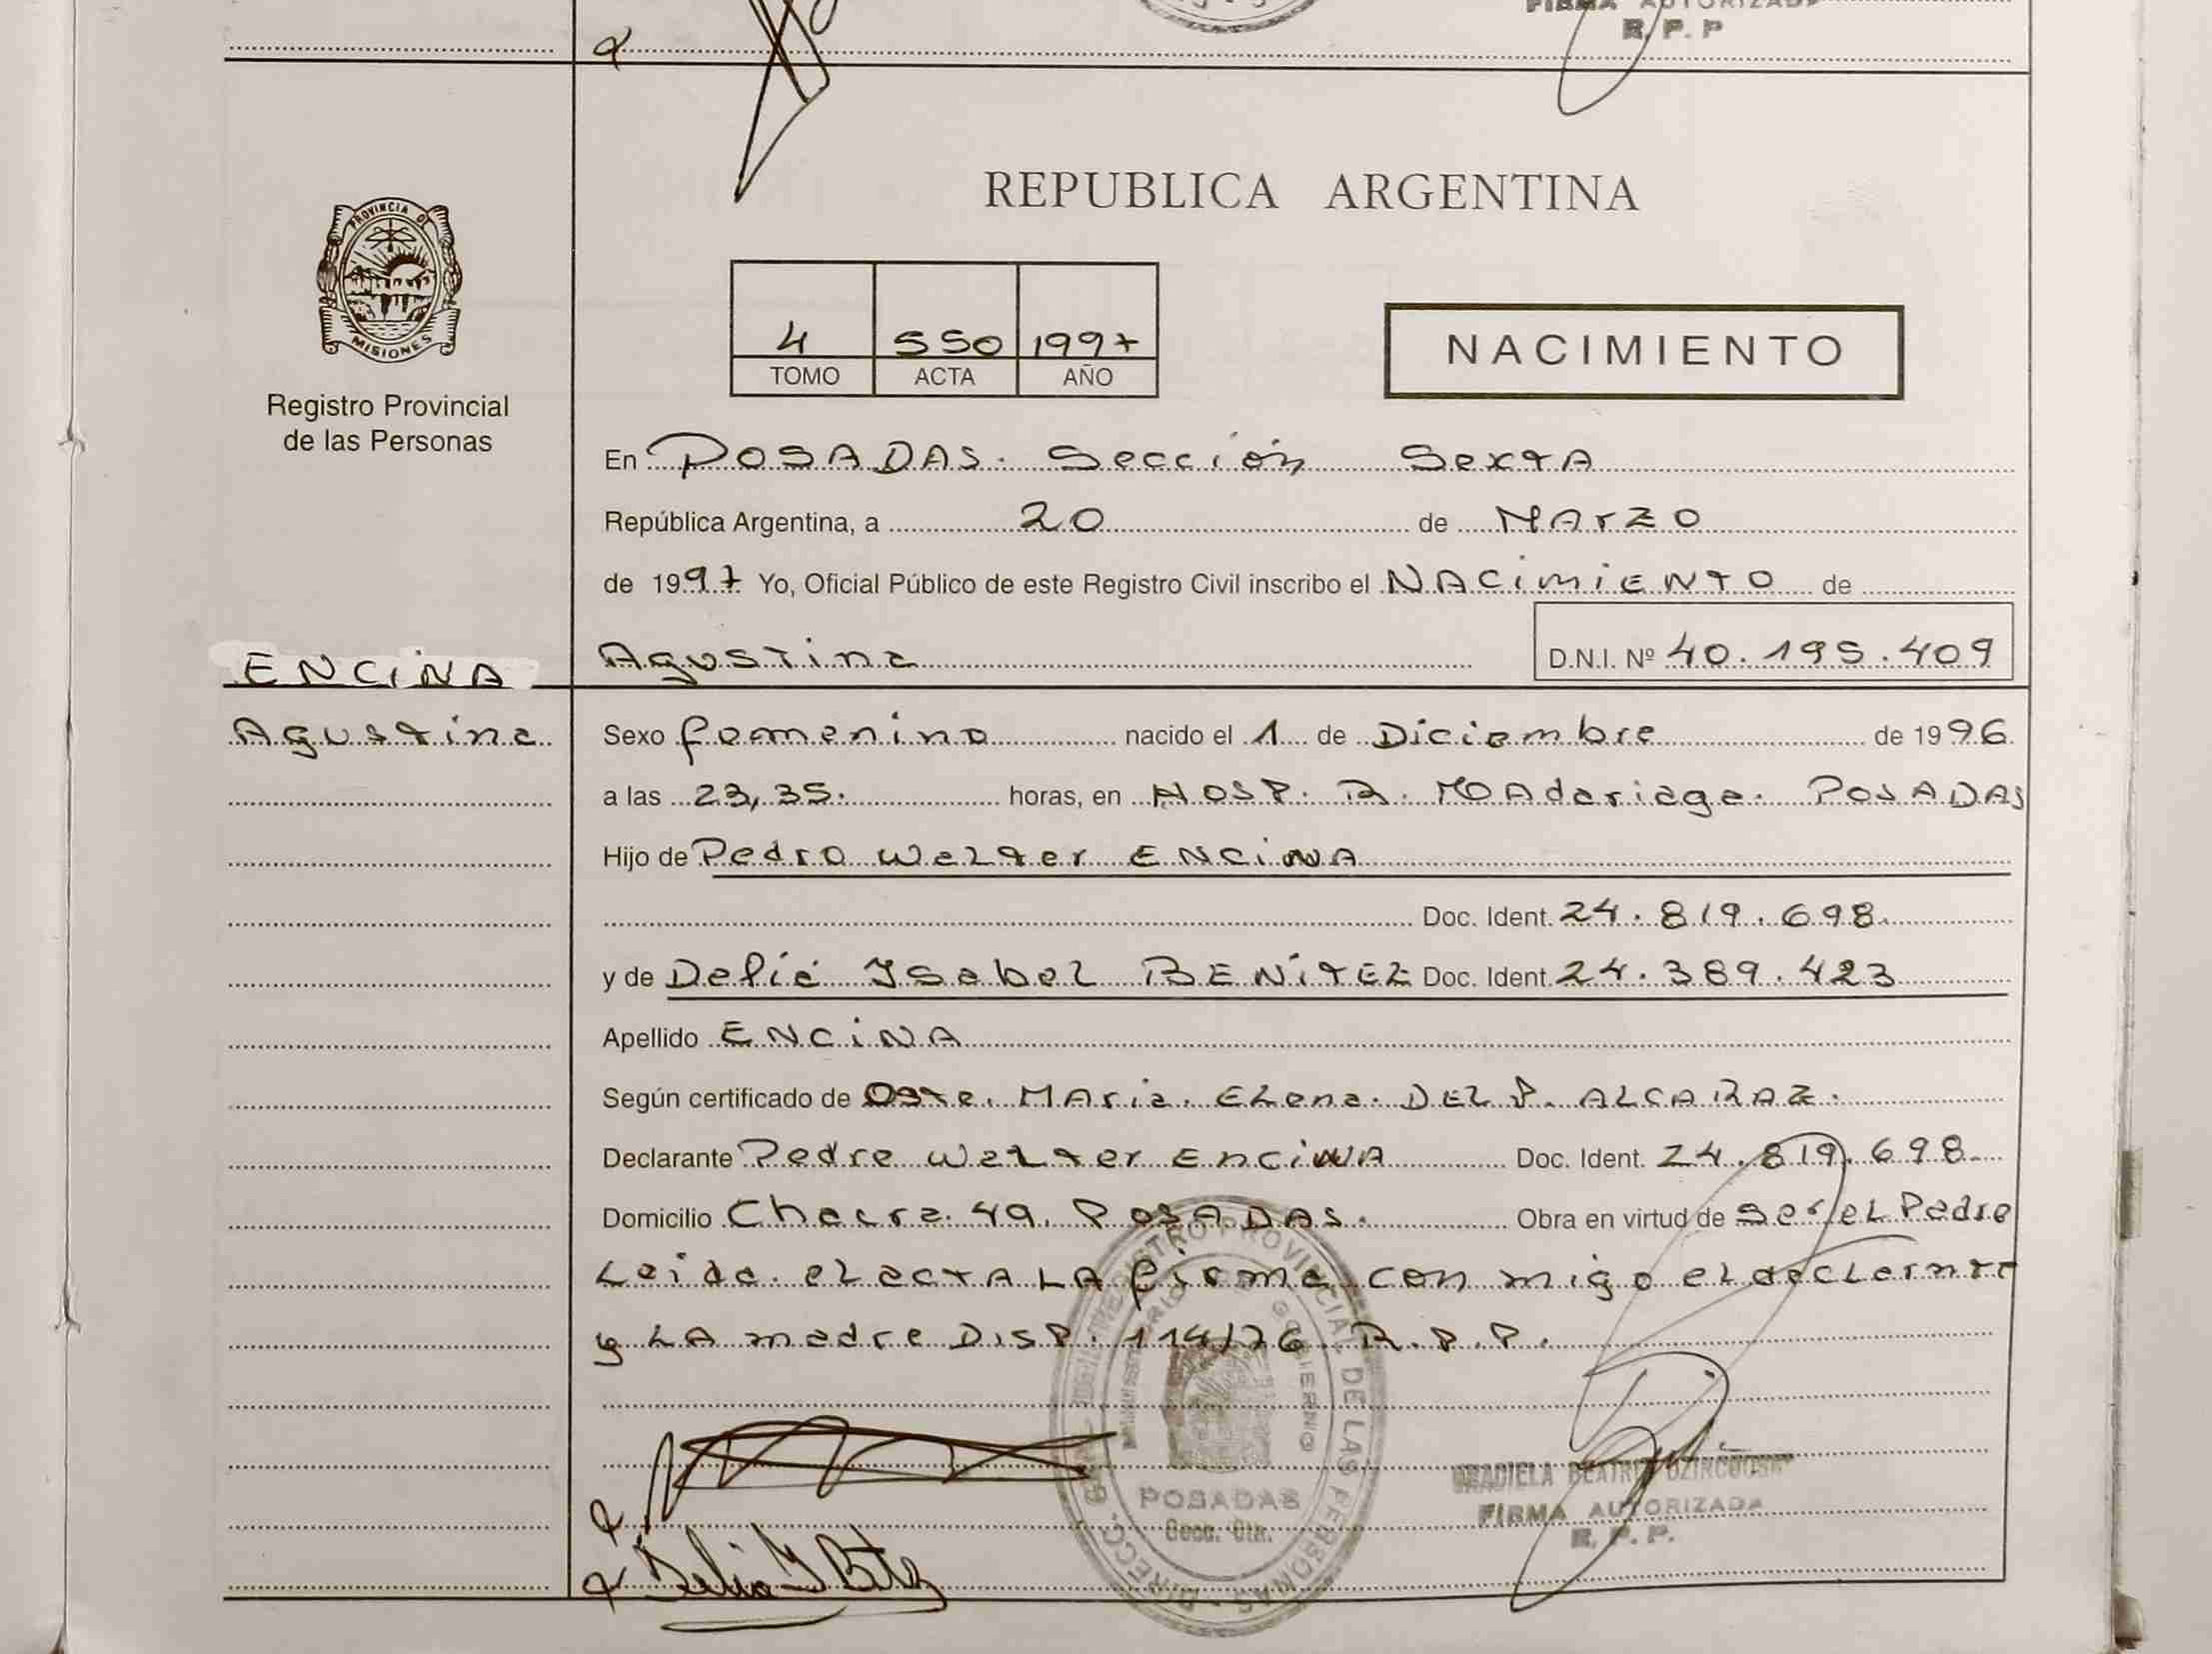 FIRMA AUTORIZADA
R. P. P
PROVINCIA DE
MISIONES
Registro Provincial
de las Personas
REPUBLICA ARGENTINA
4 550 1997
TOMO ACTA AÑO
NACIMIENTO
En POSADAS. Sección Sexta
República Argentina, a 20 de MArzo
de 1997 Yo, Oficial Público de este Registro Civil inscribo el NACimiENTO de
ENCiNA
Agustina D.N.I. Nº 40.195.409
Agustina
Sexo femenino nacido el 1 de Diciembre de 1996
a las 23,35. horas, en HOSP. R. MAdariaga. POSADAS
Hijo de Pedro Walter ENCiNA
Doc. Ident. 24.819.698.
y de Delia Isabel BENiTEZ Doc. Ident. 24.389.423
Apellido ENCiNA
Según certificado de Obste. MAria. ELena. DEL P. ALCARAZ.
Declarante Pedro Walter EnciNA Doc. Ident. 24.819.698.
Domicilio Chacra. 49. POSADAS. Obra en virtud de ser el Padre
Leida el actA LA firma con migo el declarante
y LA madre DISP. 114/76 R.P.P.
DIRECC. GRAL. DEL REGISTRO PROVINCIAL DE LAS PERSONAS
MINISTERIO DE GOBIERNO
POSADAS
Secc. 6ta.
Delia I Btez
GRACIELA BEATRIZ
FIRMA AUTORIZADA
R. P. P.